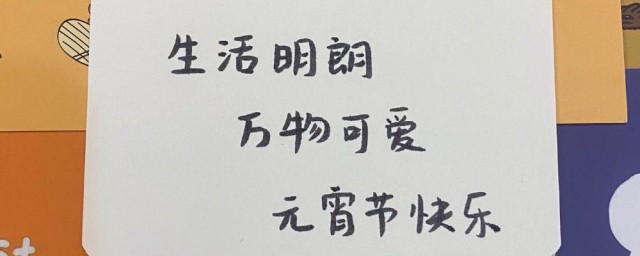 生活明朗
万物可爱
元宵节快乐